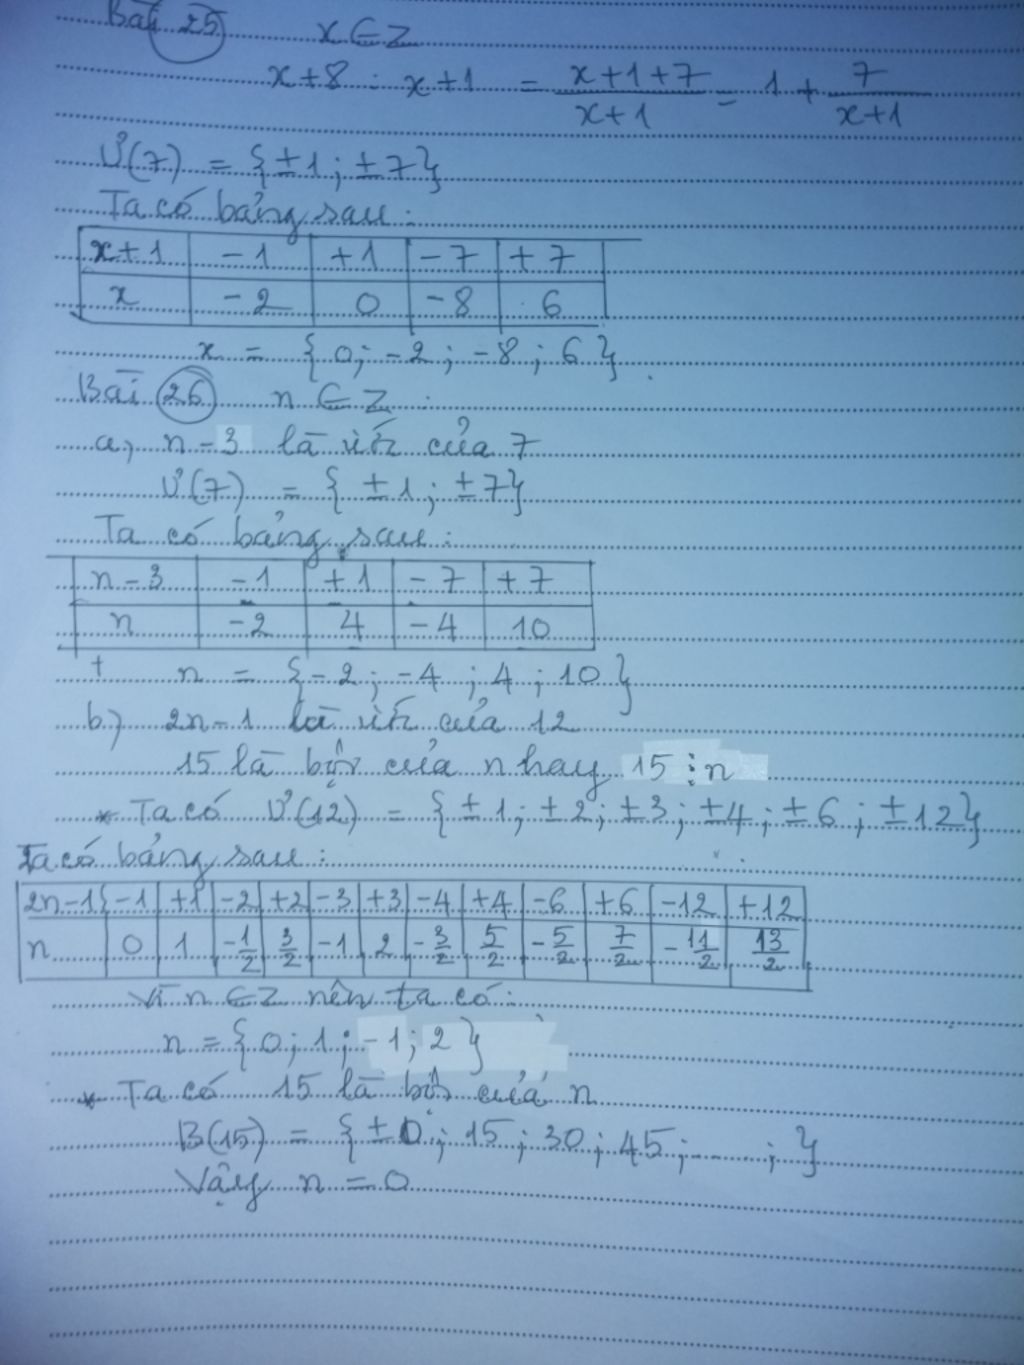 Bài 25 x ∈ Z
x+8 : x+1 = x+1+7 / x+1 = 1 + 7 / x+1
Ư(7) = {±1; ±7}
Ta có bảng sau:
x+1 -1 +1 -7 +7
x -2 0 -8 6
x = {0; -2; -8; 6}.
Bài 26 n ∈ Z
a, n-3 là ước của 7
Ư(7) = {±1; ±7}
Ta có bảng sau:
n-3 -1 +1 -7 +7
n -2 4 -4 10
+ n = {-2; -4; 4; 10}
b) 2n-1 là ước của 12
15 là bội của n hay 15 ⋮ n
* Ta có Ư(12) = {±1; ±2; ±3; ±4; ±6; ±12}
Ta có bảng sau:
2n-1 -1 +1 -2 +2 -3 +3 -4 +4 -6 +6 -12 +12
n 0 1 -1/2 3/2 -1 2 -3/2 5/2 -5/2 7/2 -11/2 13/2
Vì n ∈ Z nên ta có:
n = {0; 1; -1; 2}
* Ta có 15 là bội của n
B(15) = {±0; 15; 30; 45; ......; }
Vậy n = 0